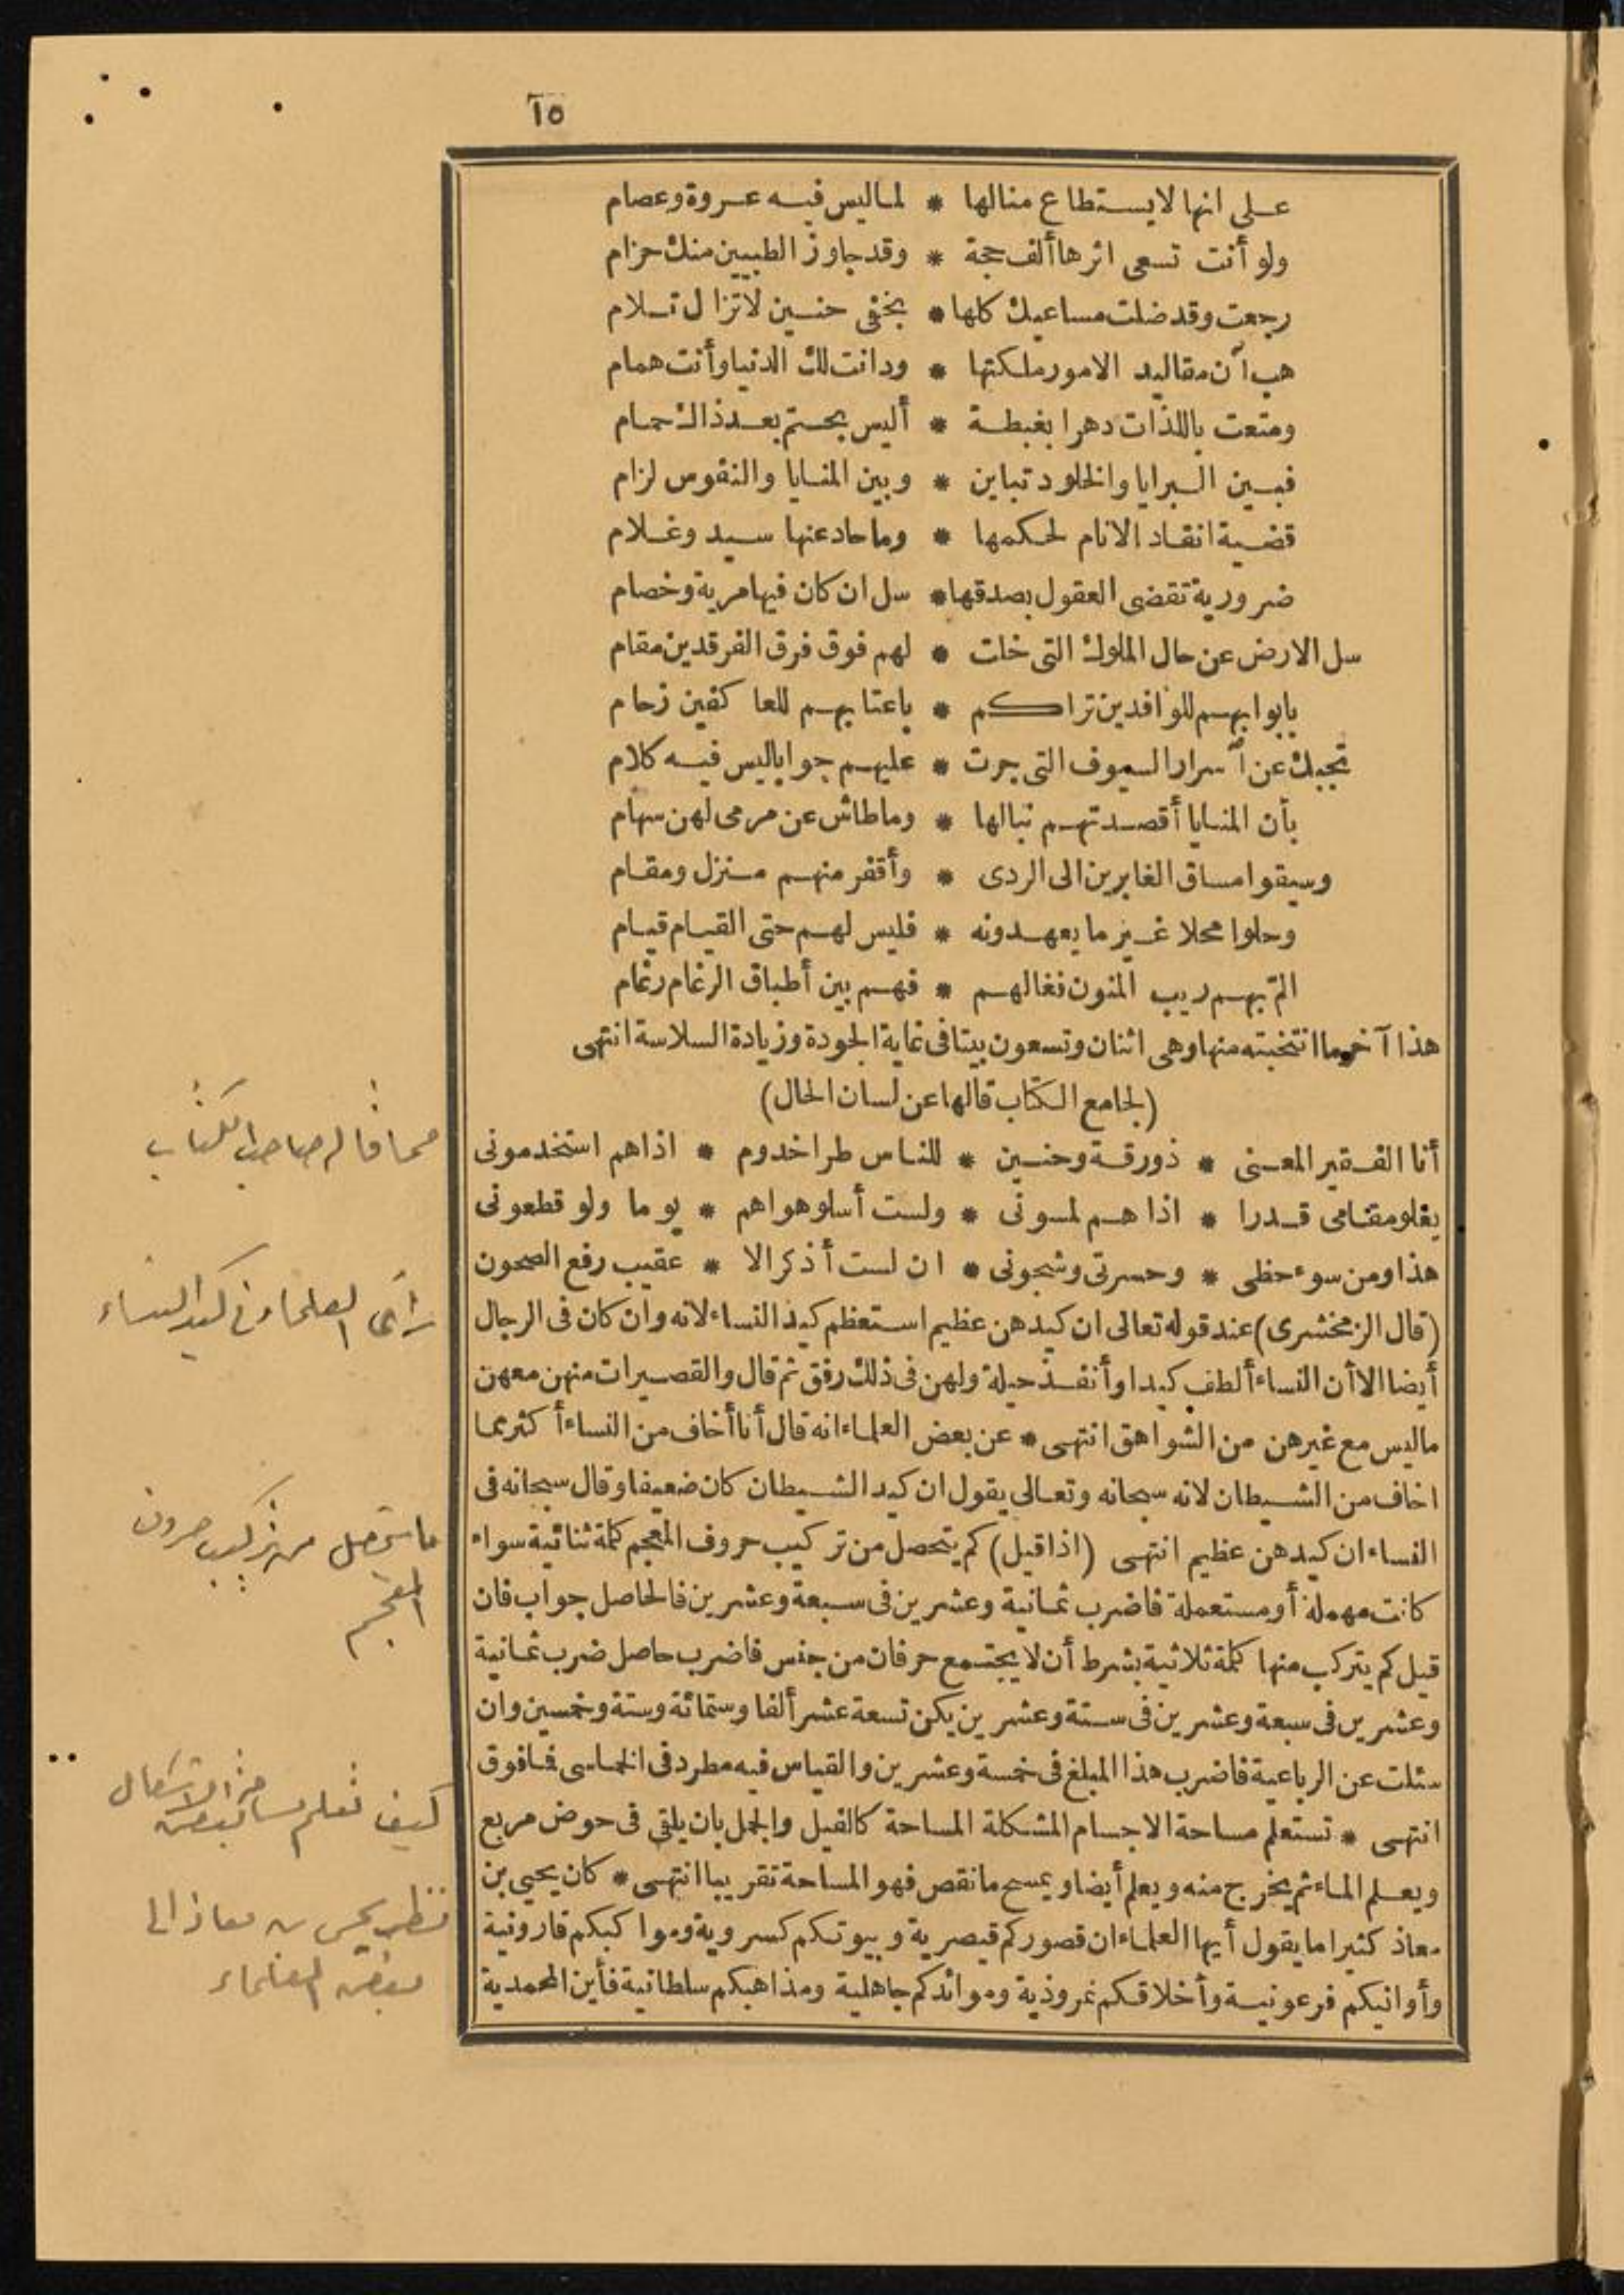 ١٥
على انها لا يستطاع منالها * لما ليس فيه عروة وعصام
ولو أنت تسعى اثرها ألف حجة * وقد جاوز الطبيين منك حزام
رجعت وقد ضلت مساعيك كلها * بخفى حنين لا تزال تلام
هب آن مقاليد الامور ملكتها * ودانت لك الدنيا وأنت همام
ومتعت باللذات دهرا بغبطة * أليس بحتم بعد ذاك حمام
فبين البرايا والخلود تباين * وبين المنايا والنفوس لزام
قضية انقاد الانام لحكمها * وما حاد عنها سيد وغلام
ضرورية تقضى العقول بصدقها * سل ان كان فيها مرية وخصام
سل الارض عن حال الملوك التى خلت * لهم فوق فرق الفرقدين مقام
بابوابهم للوافدين تراكم * باعتابهم للعا كفين زحام
تجبك عن آسرار السيوف التى جرت * عليهم جوابا ليس فيه كلام
بأن المنايا أقصدتهم نبالها * وماطاش عن مرمى لهن سهام
وسيقوا مساق الغابرين الى الردى * وأقفر منهم منزل ومقام
وحلوا محلا غير ما يعهدونه * فليس لهم حتى القيام قيام
المّ بهم ريب المنون فغالهم * فهم بين أطباق الرغام رغام
هذا آخر ما انتخبته منها وهى اثنان وتسعون بيتا فى غاية الجودة وزيادة السلاسة انتهى
(لجامع الكتاب قالها عن لسان الحال)
أنا الفقير المعنى * ذو رقة وحنين * للناس طرا خدوم * اذا هم استخدمونى
يغلو مقامى قدرا * اذا هم لمسونى * ولست أسلو هواهم * يوما ولو قطعونى
هذا ومن سوء حظى * وحسرتى وشجونى * ان لست أذكر الا * عقيب رفع الصحون
(قال الزمخشرى) عند قوله تعالى ان كيدهن عظيم استعظم كيد النساء لانه وان كان فى الرجال
أيضا الا أن النساء ألطف كيدا وأنفذ حيلة ولهن فى ذلك رفق ثم قال والقصيرات منهن معهن
ماليس مع غيرهن من الشواهق انتهى * عن بعض العلماء انه قال أنا أخاف من النساء أكثر مما
اخاف من الشيطان لانه سبحانه وتعالى يقول ان كيد الشيطان كان ضعيفا وقال سبحانه فى
النساء ان كيدهن عظيم انتهى (اذا قيل) كم يتحصل من تركيب حروف المعجم كلمة ثنائية سواء
كانت مهملة أو مستعملة فاضرب ثمانية وعشرين فى سبعة وعشرين فالحاصل جواب فان
قيل كم يتركب منها كلمة ثلاثية بشرط أن لا يجتمع حرفان من جنس فاضرب حاصل ضرب ثمانية
وعشرين فى سبعة وعشرين فى ستة وعشرين يكن تسعة عشر ألفا وستمائة وستة وخمسين وان
سئلت عن الرباعية فاضرب هذا المبلغ فى خمسة وعشرين والقياس فيه مطرد فى الخماسى فما فوق
انتهى * تستعلم مساحة الاجسام المشكلة المساحة كالفيل والجمل بان يلقى فى حوض مربع
ويعلم الماء ثم يخرج منه ويعلم أيضا ويمسح ما نقص فهو المساحة تقريبا انتهى * كان يحيى بن
معاذ كثيرا ما يقول أيها العلماء ان قصوركم قيصرية وبيوتكم كسروية ومواكبكم قارونية
وأوانيكم فرعونية وأخلاقكم نمروذية وموائدكم جاهلية ومذاهبكم سلطانية فأين المحمدية
مما قاله صاحب الكتاب
رأى العلماء فى كيد النساء
ما يتحصل من تركيب حروف
المعجم
كيف تعلم مساحة بعض الاشكال
يحيى بن معاذ الى
بعض العلماء